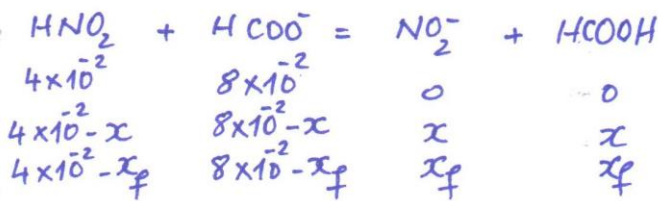 HNO₂ + HCOO⁻ = NO₂⁻ + HCOOH
4×10⁻² 8×10⁻² 0 0
4×10⁻²-x 8×10⁻²-x x x
4×10⁻²-x_f 8×10⁻²-x_f x_f x_f